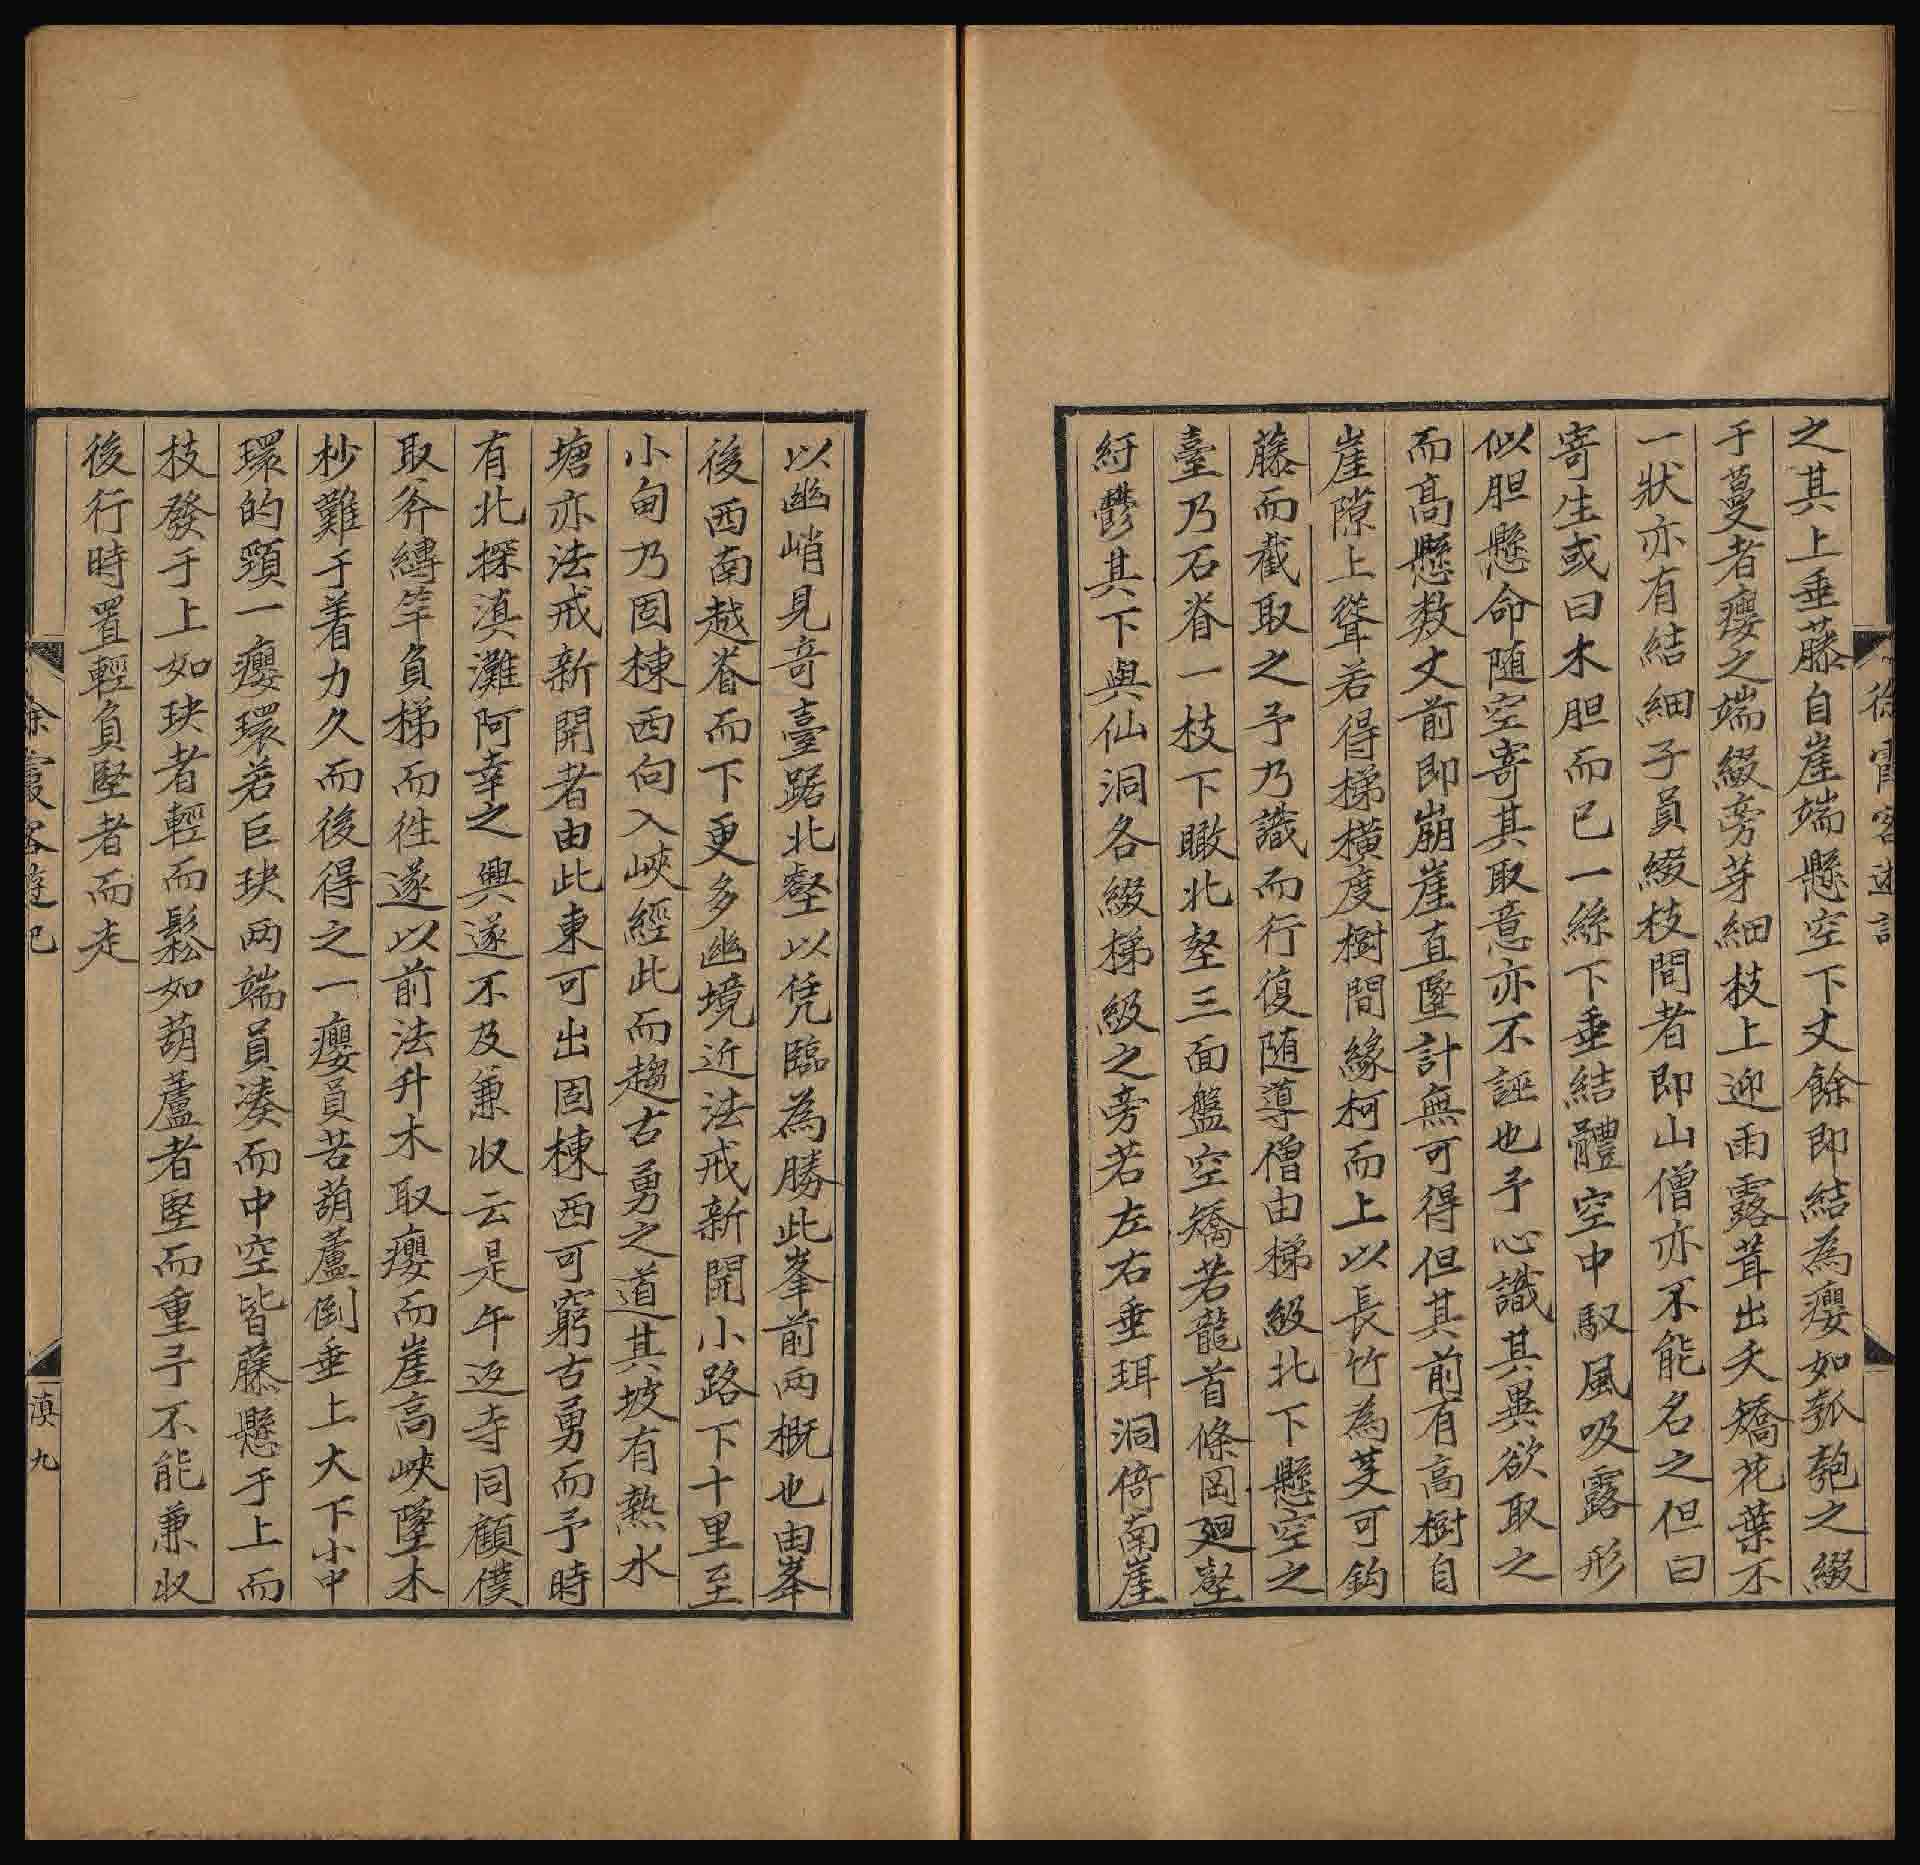 之其上垂藤自崖端懸空下丈餘即結為癭如瓠匏之綴
于蔓者癭之端綴旁芽細枝上迎雨露茸出夭矯花葉不
一狀亦有結細子員綴枝間者即山僧亦不能名之但曰
寄生或曰木胆而已一絲下垂結體空中馭風吸露形
似胆懸命随空寄其取意亦不誣也予心識其異欲取之
而高懸数丈前即崩崖直墜計無可得但其前有高樹自
崖隙上聳若得梯橫度樹間緣柯而上以長竹為芰可鈎
藤而截取之予乃識而行復随導僧由梯級北下懸空之
臺乃石脊一枝下瞰北壑三面盤空矯若龍首條岡廻壑
紆鬱其下與仙洞各綴梯級之旁若左右垂珥洞倚南崖
以幽峭見奇臺踞北壑以凭臨為勝此峯前两概也由峯
後西南越脊而下更多幽境近法戒新開小路下十里至
小甸乃固棟西向入峽經此而趨古勇之道其坡有熱水
塘亦法戒新開者由此東可出固棟西可窮古勇而予時
有北探滇灘阿幸之興遂不及兼収云是午返寺同顧僕
取斧縛竿負梯而徃遂以前法升木取癭而崖高峽墜木
杪難于着力久而後得之一癭員苦葫蘆倒垂上大下小中
環的頸一癭環若巨玦两端員湊而中空皆藤懸于上而
枝發于上如玦者輕而鬆如葫蘆者堅而重予不能兼収
後行時置輕負堅者而走
徐霞客遊記
滇九